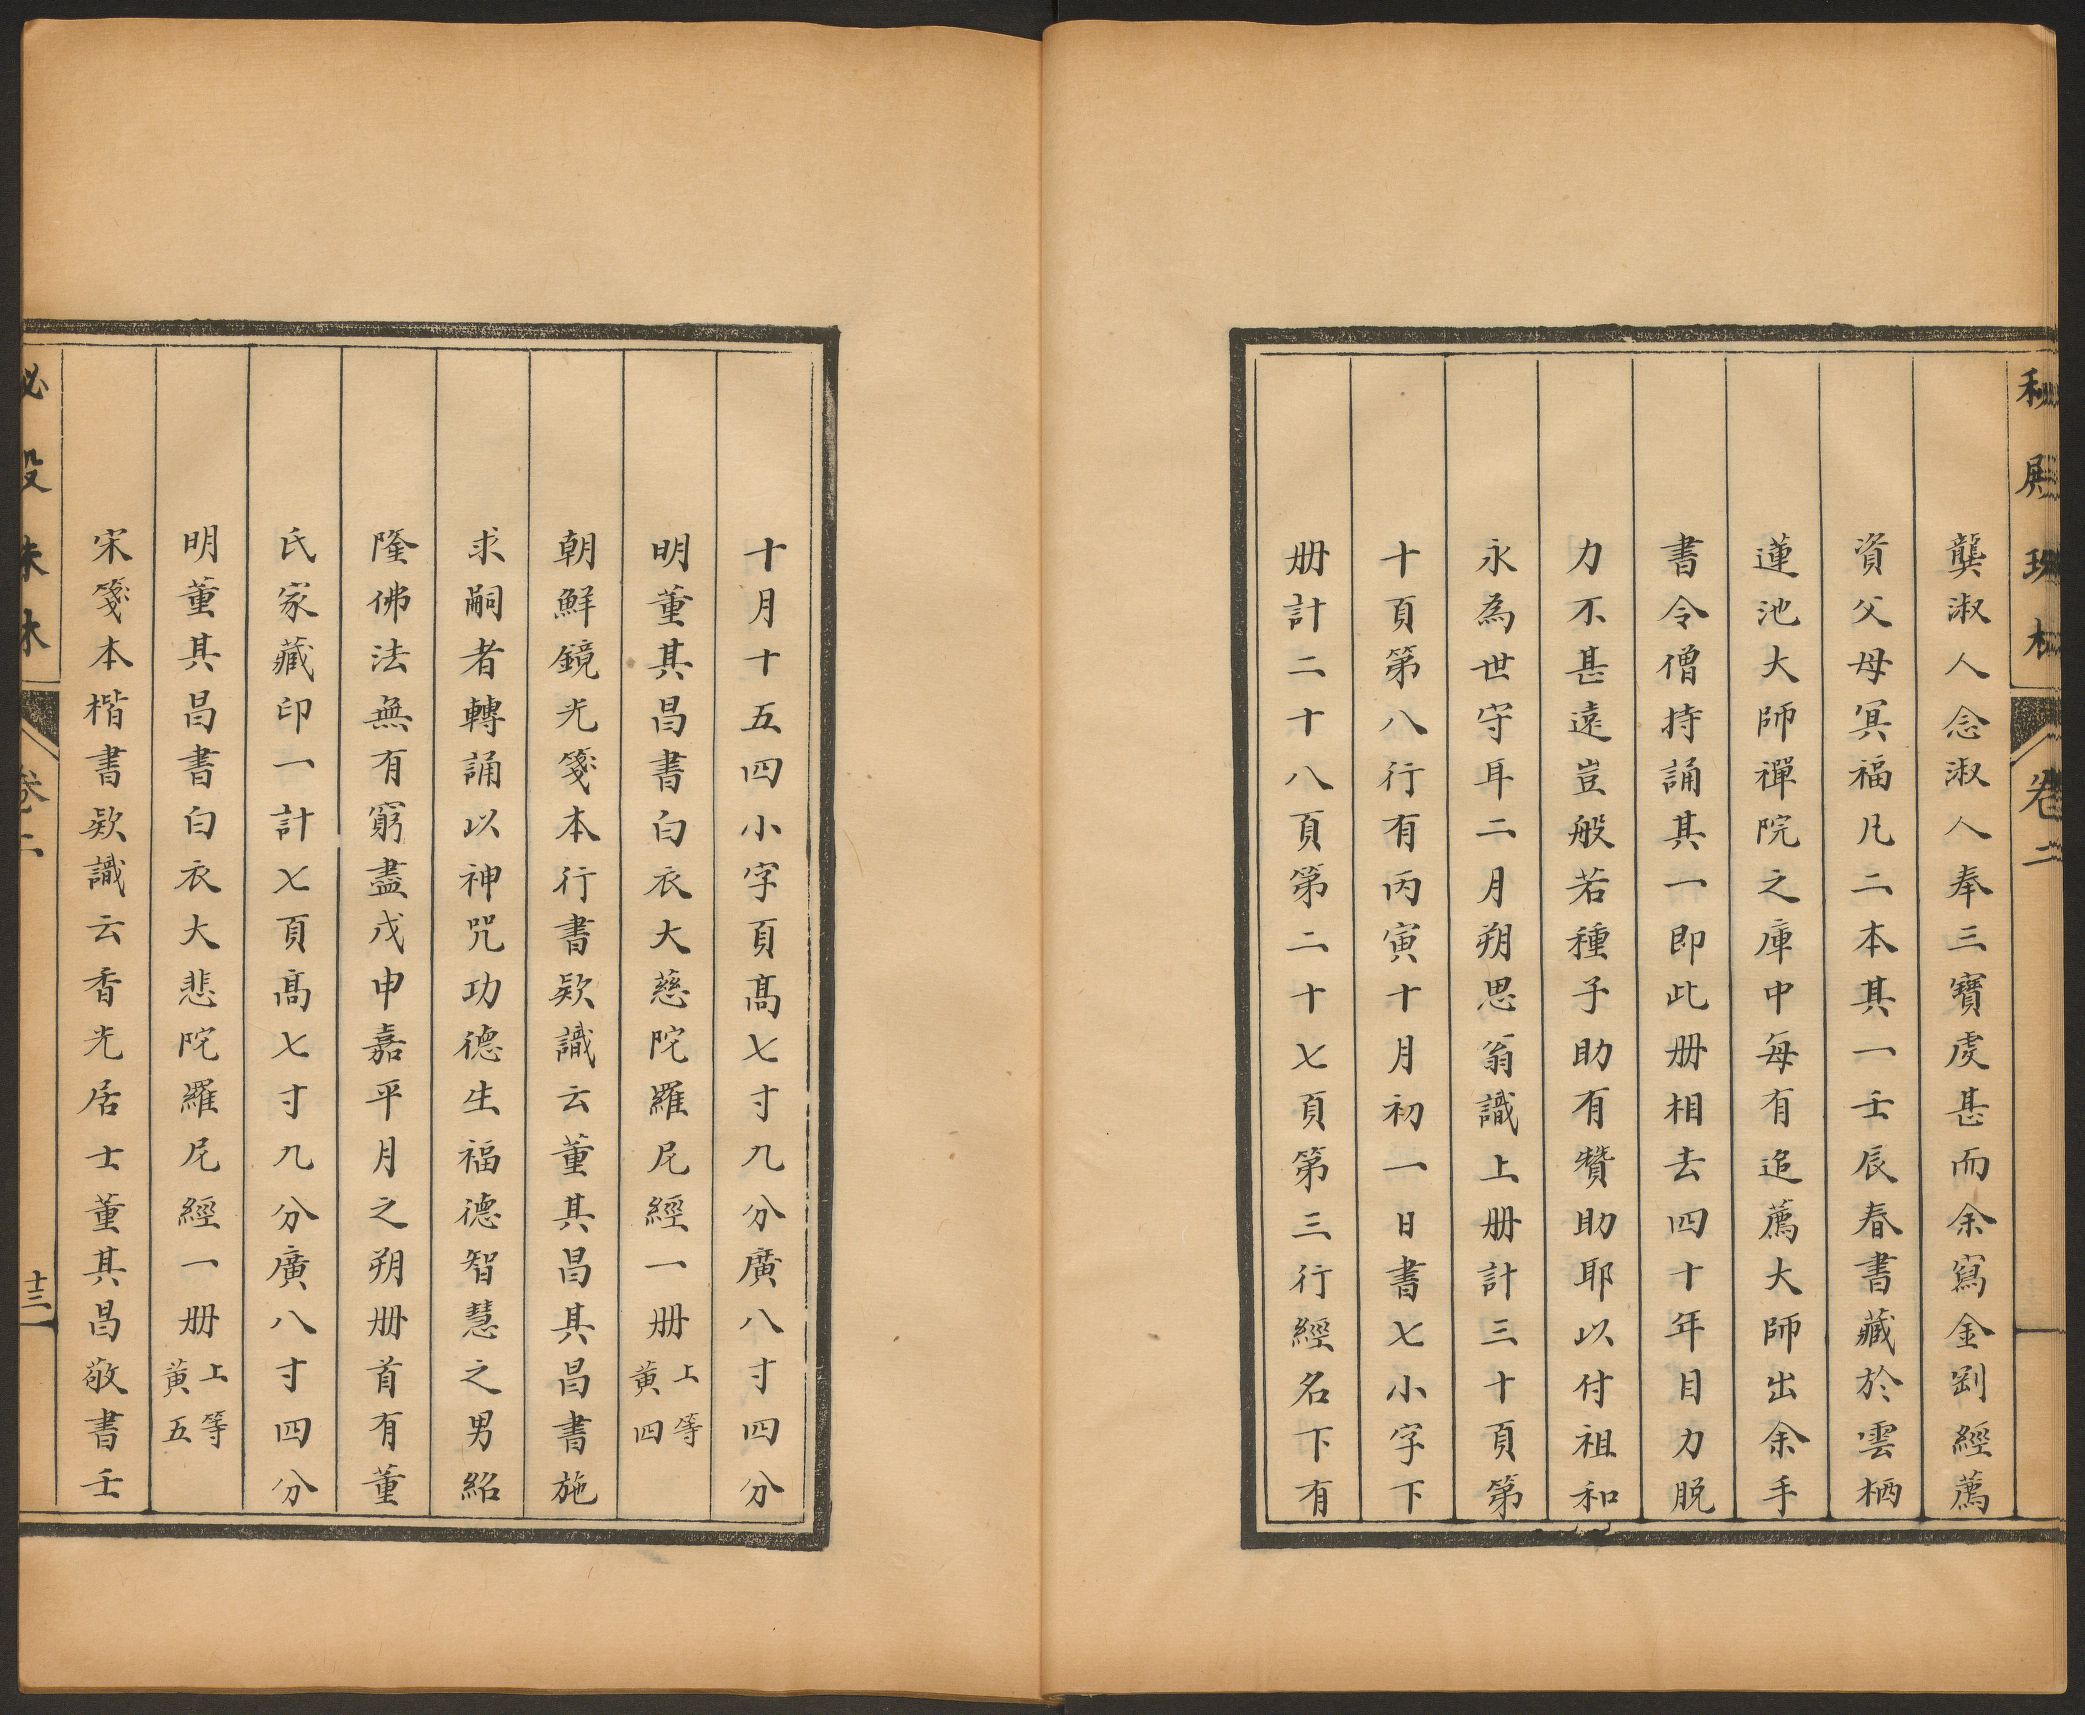 秘殿珠林 卷二
龔淑人念淑人奉三寶虔甚而余寫金剛經薦
資父母冥福凡二本其一壬辰春書藏於雲栖
蓮池大師禪院之庫中每有追薦大師出余手
書令僧持誦其一即此册相去四十年目力脱
力不甚遠豈般若種子助有贊助耶以付祖和
永為世守耳二月朔思翁識上册計三十頁第
十頁第八行有丙寅十月初一日書七小字下
册計二十八頁第二十七頁第三行經名下有
十月十五四小字頁髙七寸九分廣八寸四分
明董其昌書白衣大慈陀羅尼經一册上等黄四
朝鮮鏡光箋本行書欵識云董其昌其昌書施
求嗣者轉誦以神咒功德生福德智慧之男紹
隆佛法無有窮盡戊申嘉平月之朔册首有董
氏家藏印一計七頁髙七寸九分廣八寸四分
明董其昌書白衣大悲陀羅尼經一册上等黄五
宋箋本楷書欵識云香光居士董其昌敬書壬
秘殿珠林 卷二 十三